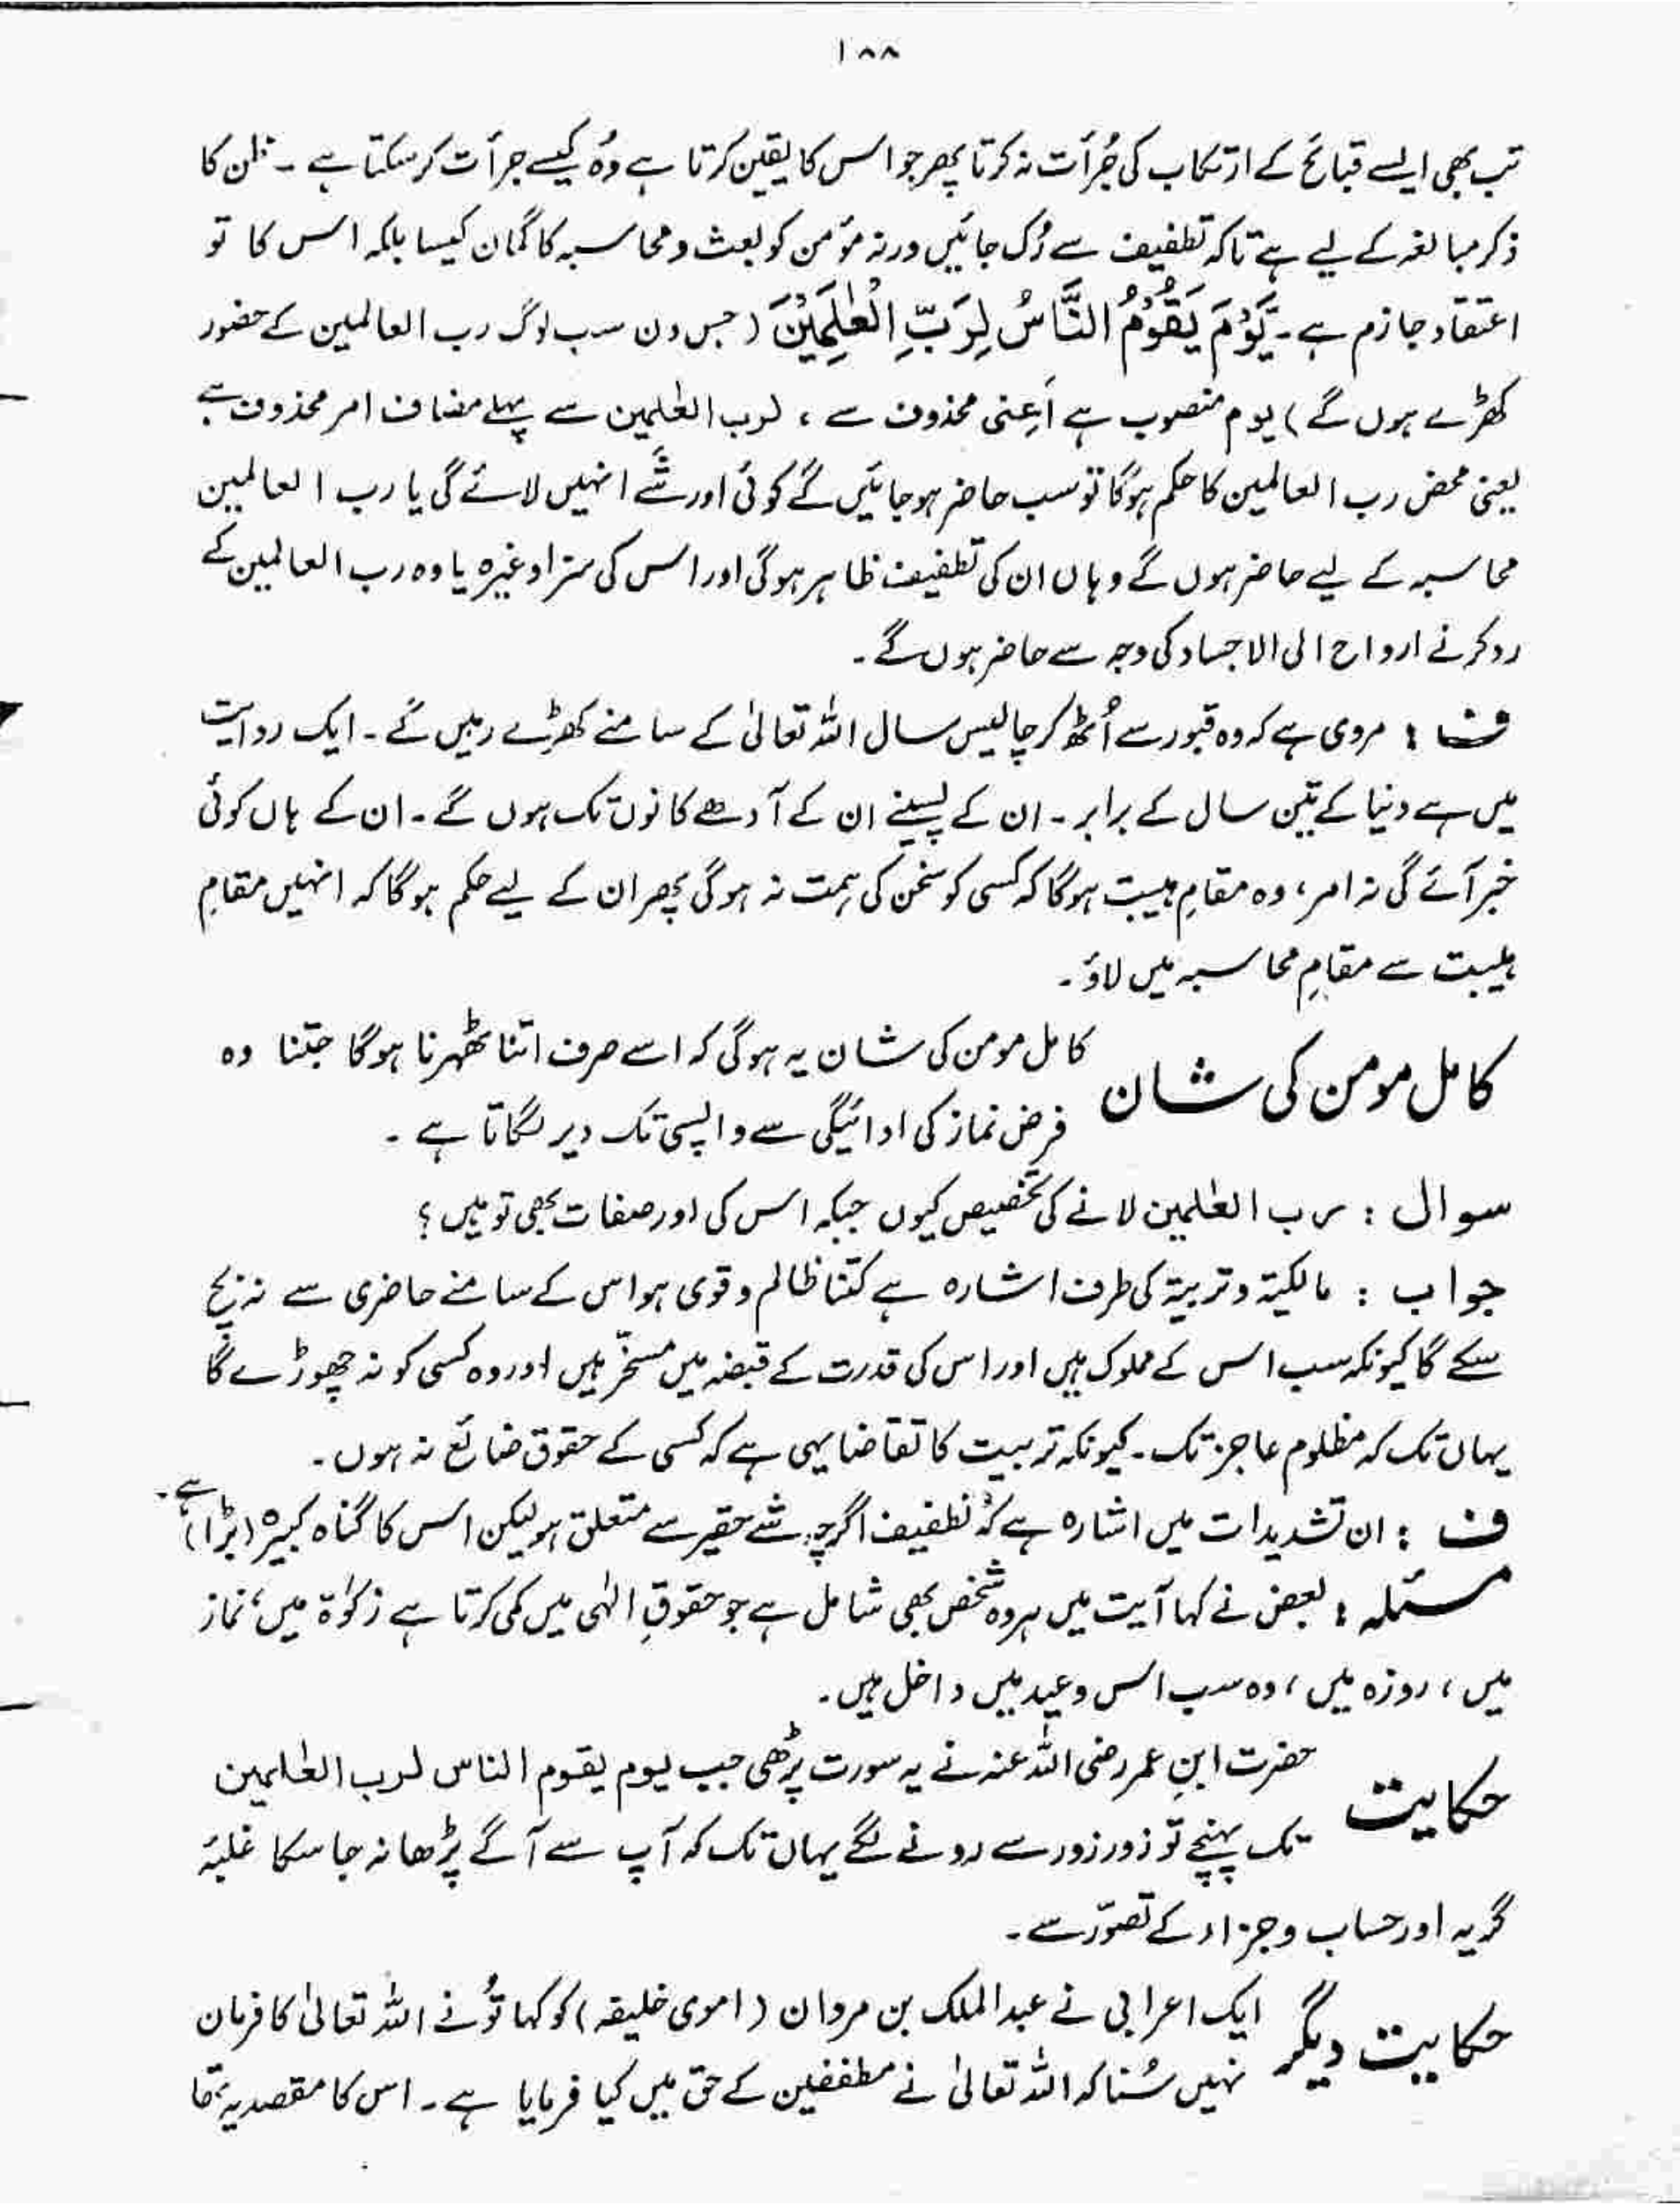 ۱۸۸
تب بھی ایسے قبائح کے ارتکاب کی جُرأت نہ کرتا پھر جو اس کا یقین کرتا ہے وُہ کیسے جرأت کر سکتا ہے ۔ ظن کا
ذکر مبالغہ کے لیے ہے تاکہ تطفیف سے رُک جائیں ورنہ مؤمن کو بعث و محاسبہ کا گمان کیسا بلکہ اس کا تو
اعتقاد جازم ہے ۔ یَّوْمَ یَقُوْمُ النَّاسُ لِرَبِّ الْعٰلَمِیْنَ (جس دن سب لوگ رب العالمین کے حضور
کھڑے ہوں گے) یوم منصوب ہے اَعِنی محذوف سے ، لرب العٰلمین سے پہلے مضاف امر محذوف ہے
یعنی محض رب العالمین کا حکم ہوگا تو سب حاضر ہوجائیں گے کوئی اور شَے انہیں لائے گی یا رب العالمین
محاسبہ کے لیے حاضر ہوں گے وہاں ان کی تطفیف ظاہر ہوگی اور اس کی سزا وغیرہ یا وہ رب العالمین کے
رد کرنے ارواح الی الاجساد کی وجہ سے حاضر ہوں گے ۔
ف : مروی ہے کہ وہ قبور سے اُٹھ کر چالیس سال اللہ تعالیٰ کے سامنے کھڑے رہیں گے ۔ ایک روایت
میں ہے دنیا کے تین سال کے برابر ۔ ان کے پسینے ان کے آدھے کانوں تک ہوں گے ۔ ان کے ہاں کوئی
خبر آئے گی نہ امر ، وہ مقامِ ہیبت ہوگا کہ کسی کو سخن کی ہمت نہ ہوگی پھر ان کے لیے حکم ہوگا کہ انہیں مقامِ
ہیبت سے مقامِ محاسبہ میں لاؤ ۔
کامل مومن کی شان کامل مومن کی شان یہ ہوگی کہ اسے صرف اتنا ٹھہرنا ہوگا جتنا وہ
فرض نماز کی ادائیگی سے واپسی تک دیر لگاتا ہے ۔
سوال : رب العٰلمین لانے کی تخصیص کیوں جبکہ اس کی اور صفات بھی تو ہیں ؟
جواب : مالکیۃ و تربیۃ کی طرف اشارہ ہے کتنا ظالم و قوی ہو اس کے سامنے حاضری سے نہ بچ
سکے گا کیونکہ سب اس کے مملوک ہیں اور اس کی قدرت کے قبضہ میں مسخّر ہیں اور وہ کسی کو نہ چھوڑے گا
یہاں تک کہ مظلوم عاجز تک ۔ کیونکہ تربیت کا تقاضا یہی ہے کہ کسی کے حقوق ضائع نہ ہوں ۔
ف : ان تشدیدات میں اشارہ ہے کہ تطفیف اگرچہ شے حقیر سے متعلق ہو لیکن اس کا گناہ کبیرہ (بڑا) ہے ۔
مسئلہ : بعض نے کہا آیت میں ہر وہ شخص بھی شامل ہے جو حقوقِ الٰہی میں کمی کرتا ہے زکوٰۃ میں ، نماز
میں ، روزہ میں ، وہ سب اس وعید میں داخل ہیں ۔
حکایت حضرت ابنِ عمر رضی اللہ عنہ نے یہ سورت پڑھی جب یوم یقوم الناس لرب العٰلمین
تک پہنچے تو زور زور سے رونے لگے یہاں تک کہ آپ سے آگے پڑھا نہ جا سکا غلبۂ
گریہ اور حساب و جزاء کے تصوّر سے ۔
حکایت دیگر ایک اعرابی نے عبدالملک بن مروان (اموی خلیفہ) کو کہا تُو نے اللہ تعالیٰ کا فرمان
نہیں سُنا کہ اللہ تعالیٰ نے مطففین کے حق میں کیا فرمایا ہے ۔ اس کا مقصد یہ تھا